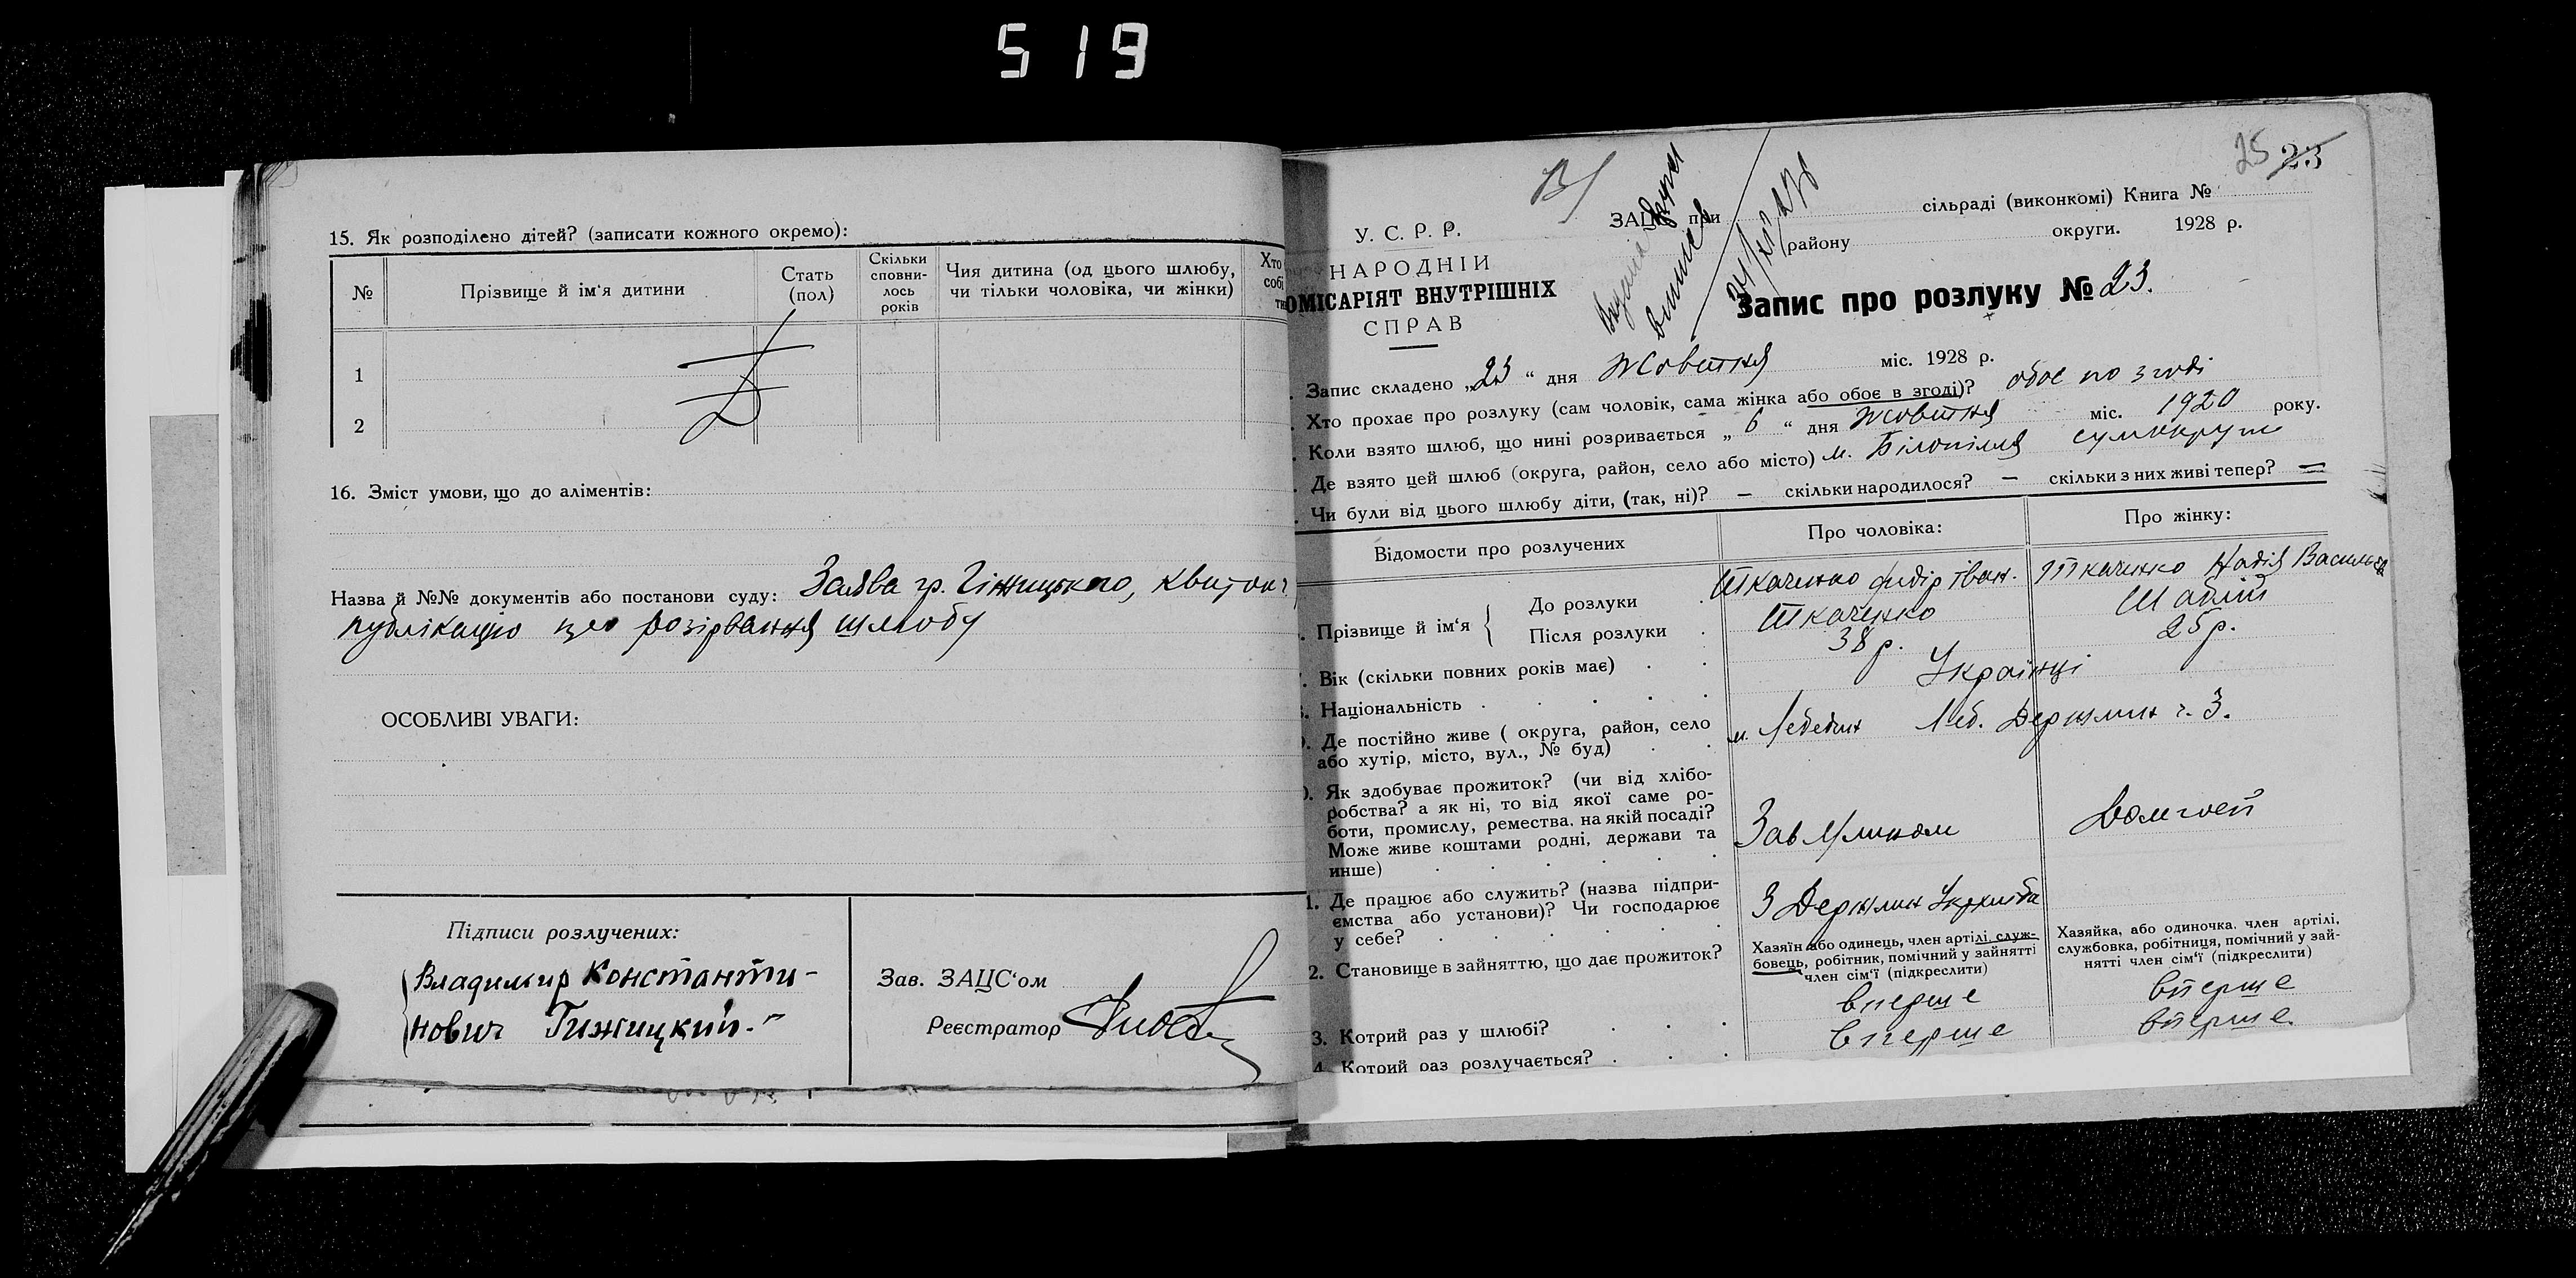 519
15. Як розподілено дітей? (записати кожного окремо):
№
Прізвище й ім'я дитини
Стать (пол)
Скільки сповни-лось років
Чия дитина (од цього шлюбу, чи тільки чоловіка, чи жінки)
Хто
собі
1
2
16. Зміст умови, що до аліментів:
Назва й №№ документів або постанови суду: Заява гр. Гінжицького, квитон
публікацію про розірвання шлюбу
ОСОБЛИВІ УВАГИ:
Підписи розлучених:
Владимир Константи-
нович Гижицкий.-
Зав. ЗАЦС'ом
Реєстратор
25 23
У. С. Р. Р.
НАРОДНІЙ
ОМІСАРІЯТ ВНУТРІШНІХ
СПРАВ
ЗАЦС при сільраді (виконкомі) Книга №
району округи. 1928 р.
Запис про розлуку № 23.
Запис складено „23" дня Жовтня міс. 1928 р.
Хто прохає про розлуку (сам чоловік, сама жінка або обоє в згоді)? обоє по згоді
Коли взято шлюб, що нині розривається „6" дня Жовтня міс. 1920 року.
Де взято цей шлюб (округа, район, село або місто) м. Білопілля сумокруги
Чи були від цього шлюбу діти, (так, ні)? — скільки народилося? — скільки з них живі тепер? —
Відомости про розлучених
Про чоловіка:
Про жінку:
Прізвище й ім'я { До розлуки Ткаченко Федір Іван. Ткаченко Надія Васильев
Після розлуки Ткаченко Шаблій
Вік (скільки повних років має) 38 р. 25 р.
Національність Українці
Де постійно живе ( округа, район, село
або хутір, місто, вул., № буд) м. Лебедин Леб. Держмлин ч. 3.
Як здобуває прожиток? (чи від хлібо-
робства? а як ні, то від якої саме ро-
боти, промислу, ремества. на якій посаді?
Може живе коштами родні, держави та
инше) Зав Млином Домгосп
1. Де працює або служить? (назва підпри-
ємства або установи)? Чи господарює
у себе? 3 Держмлин Укрхліба
2. Становище в зайняттю, що дає прожиток?
Хазяїн або одинець, член артілі, служ-
бовець, робітник, помічний у зайнятті
член сім'ї (підкреслити)
Хазяйка, або одиночка. член артілі,
службовка, робітниця, помічний у зай-
нятті член сім'ї (підкреслити)
3. Котрий раз у шлюбі? вперше вперше
4. Котрий раз розлучається? вперше вперше.